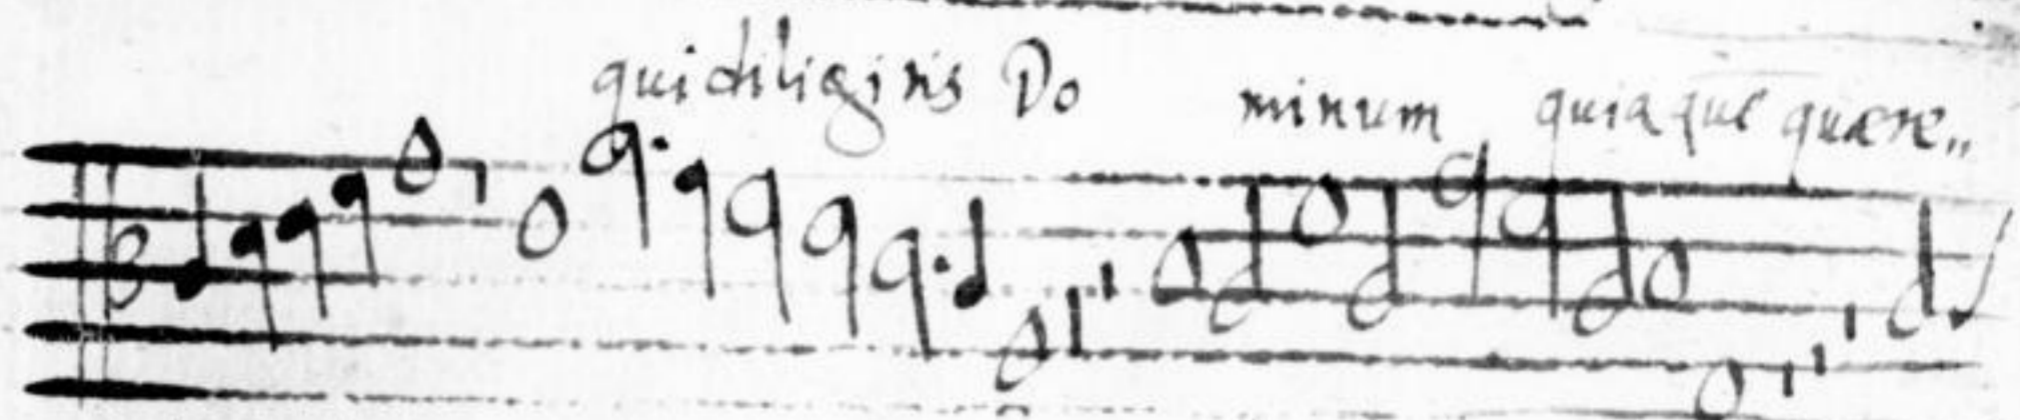 qui diligitis Do minum quia que quære„